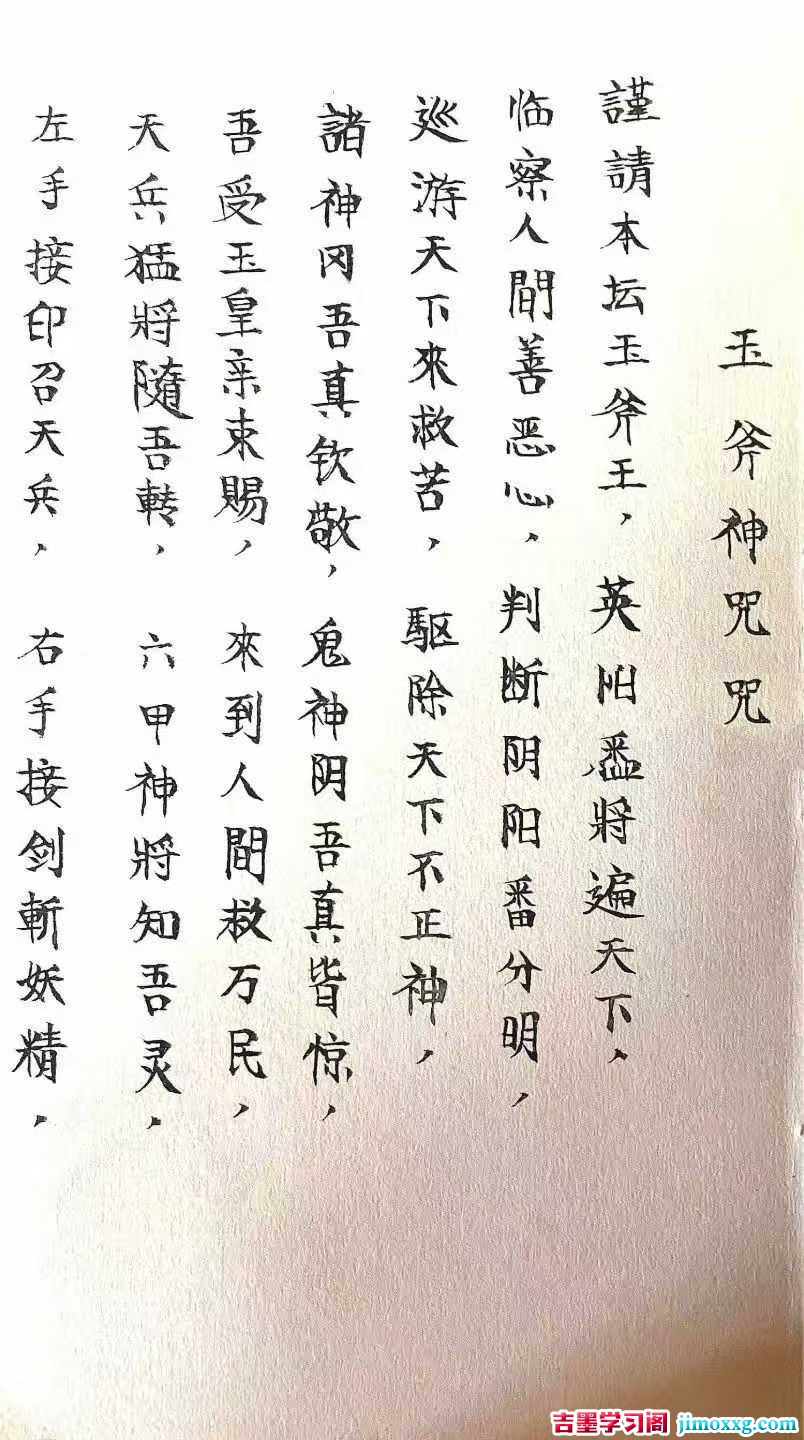 玉斧神咒咒
謹請本坛玉斧王，英阳盉將遍天下，
临察人間善恶心，判断阴阳番分明，
巡游天下來救苦，驱除天下不正神，
諸神冈吾真钦敬，鬼神阴吾真皆惊，
吾受玉皇亲束賜，來到人間救万民，
天兵猛將隨吾转，六甲神將知吾灵，
左手接印召天兵，右手接剑斬妖精，
吉墨学习阁 jimoxxg.com